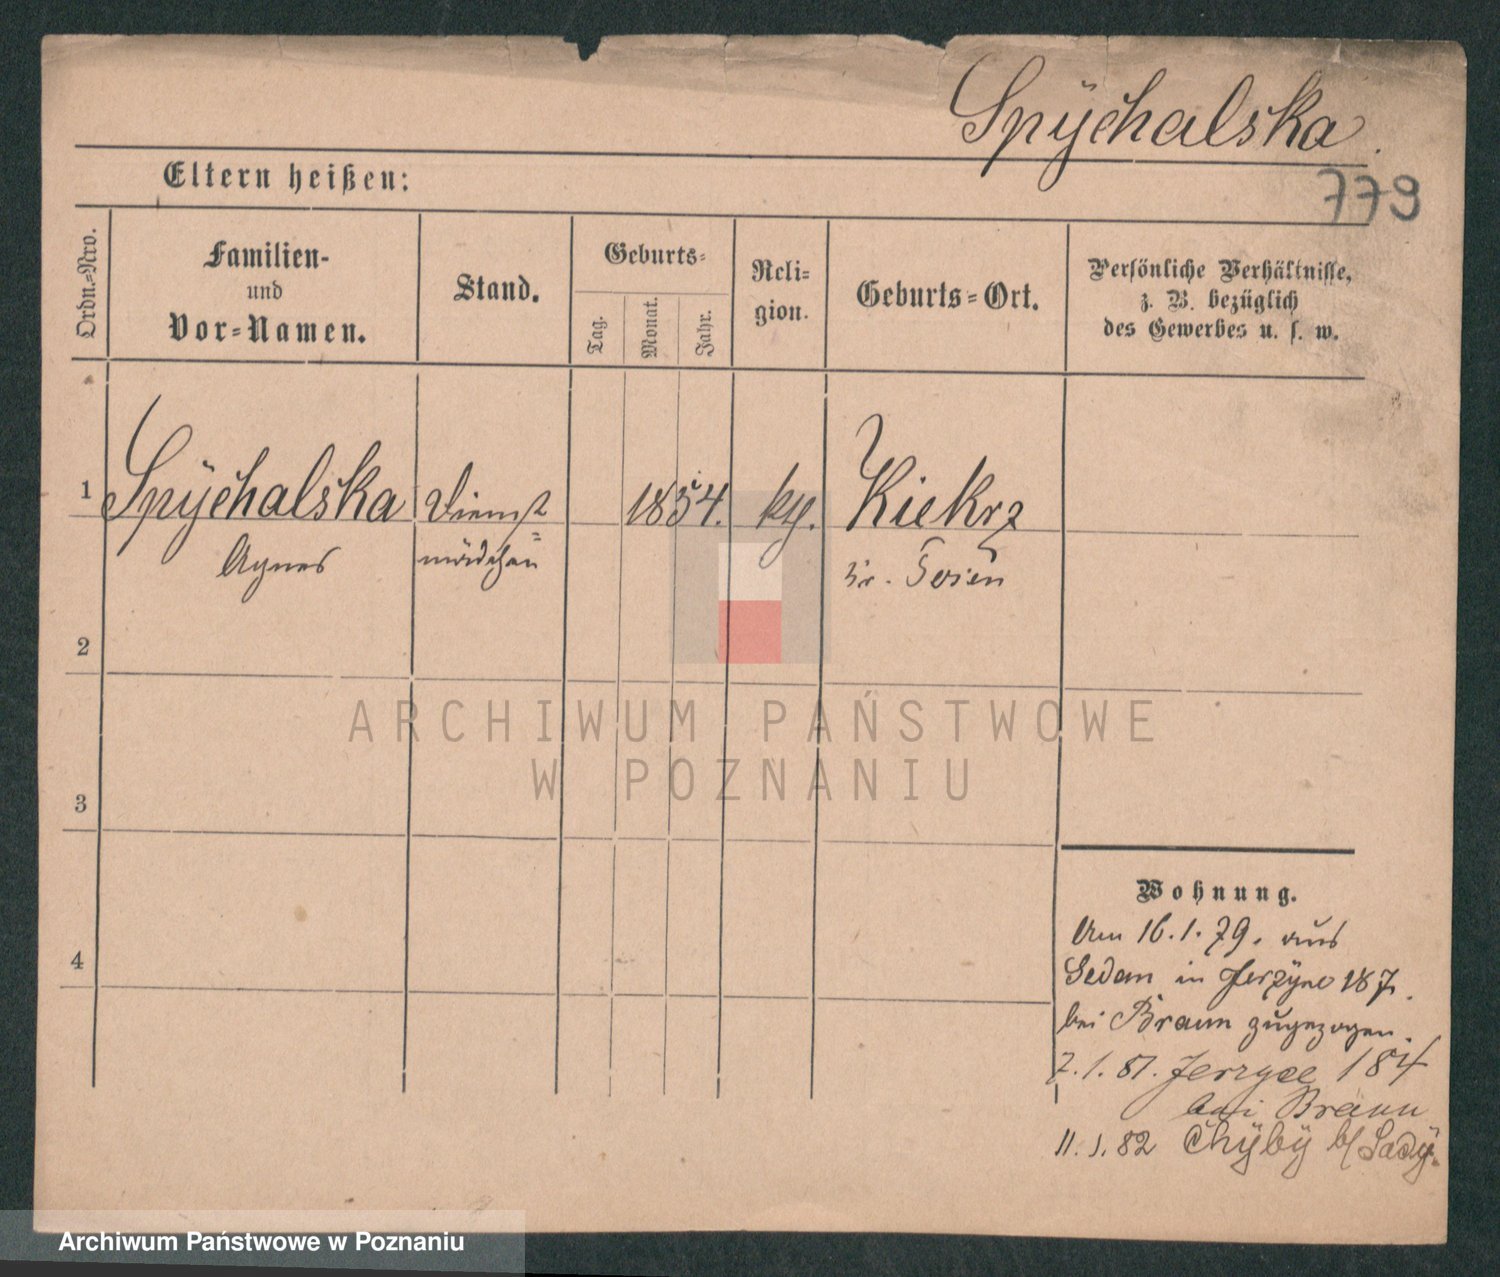 Spÿchalska.
779
Eltern heißen:
Ordn.-Nro.
Familien-
und
Vor-Namen.
Stand.
Geburts-
Tag.
Monat.
Jahr.
Reli-
gion.
Geburts-Ort.
Persönliche Verhältnisse,
z. B. bezüglich
des Gewerbes u. s. w.
1
Spÿchalska
Agnes
Dienst
mädchen
1854.
kg.
Kiekrz
Kr. Posen
2
ARCHIWUM PAŃSTWOWE
W POZNANIU
3
4
Wohnung.
Am 16.1.79. aus
Sedan in Jerzyce 187.
bei Braun zugezogen.
2.1.81. Jerzyce 184
bei Braun
11.1.82 Chÿbÿ b/ Sadÿ.
Archiwum Państwowe w Poznaniu